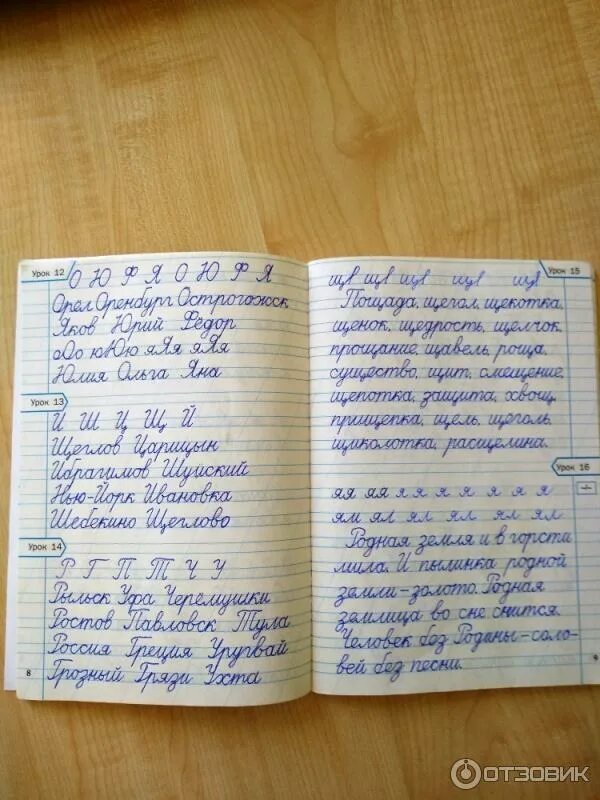 Урок 12
О Ю Ф Я О Ю Ф Я
Орел Оренбург Острогожск
Яков Юрий Фёдор
оОо юЮю яЯя яЯя
Юлия Ольга Яна
Урок 13
И Ш Ц Щ Й
Щеглов Царицын
Ибрагимов Шуйский
Нью-Йорк Ивановка
Шебекино Щеглово
Урок 14
Р Г П Т Ч У
Рыльск Уфа Черемушки
Ростов Павловск Тула
Россия Греция Уругвай
Грозный Грязи Ухта
8
Урок 15
Пощада, щегол, щекотка,
щенок, щедрость, щелчок,
прощание, щавель, роща,
существо, щит, смещение,
щепотка, защита, хвощ,
прищепка, щель, щеголь,
щиколотка, расщелина.
Урок 16
яя яя я я я я я я я
ям ял ял ял ял ял
Родная земля и в горсти
мила. И пылинка родной
земли – золото. Родная
землица во сне снится.
Человек без Родины – соло-
вей без песни.
9
ОТЗОВИК